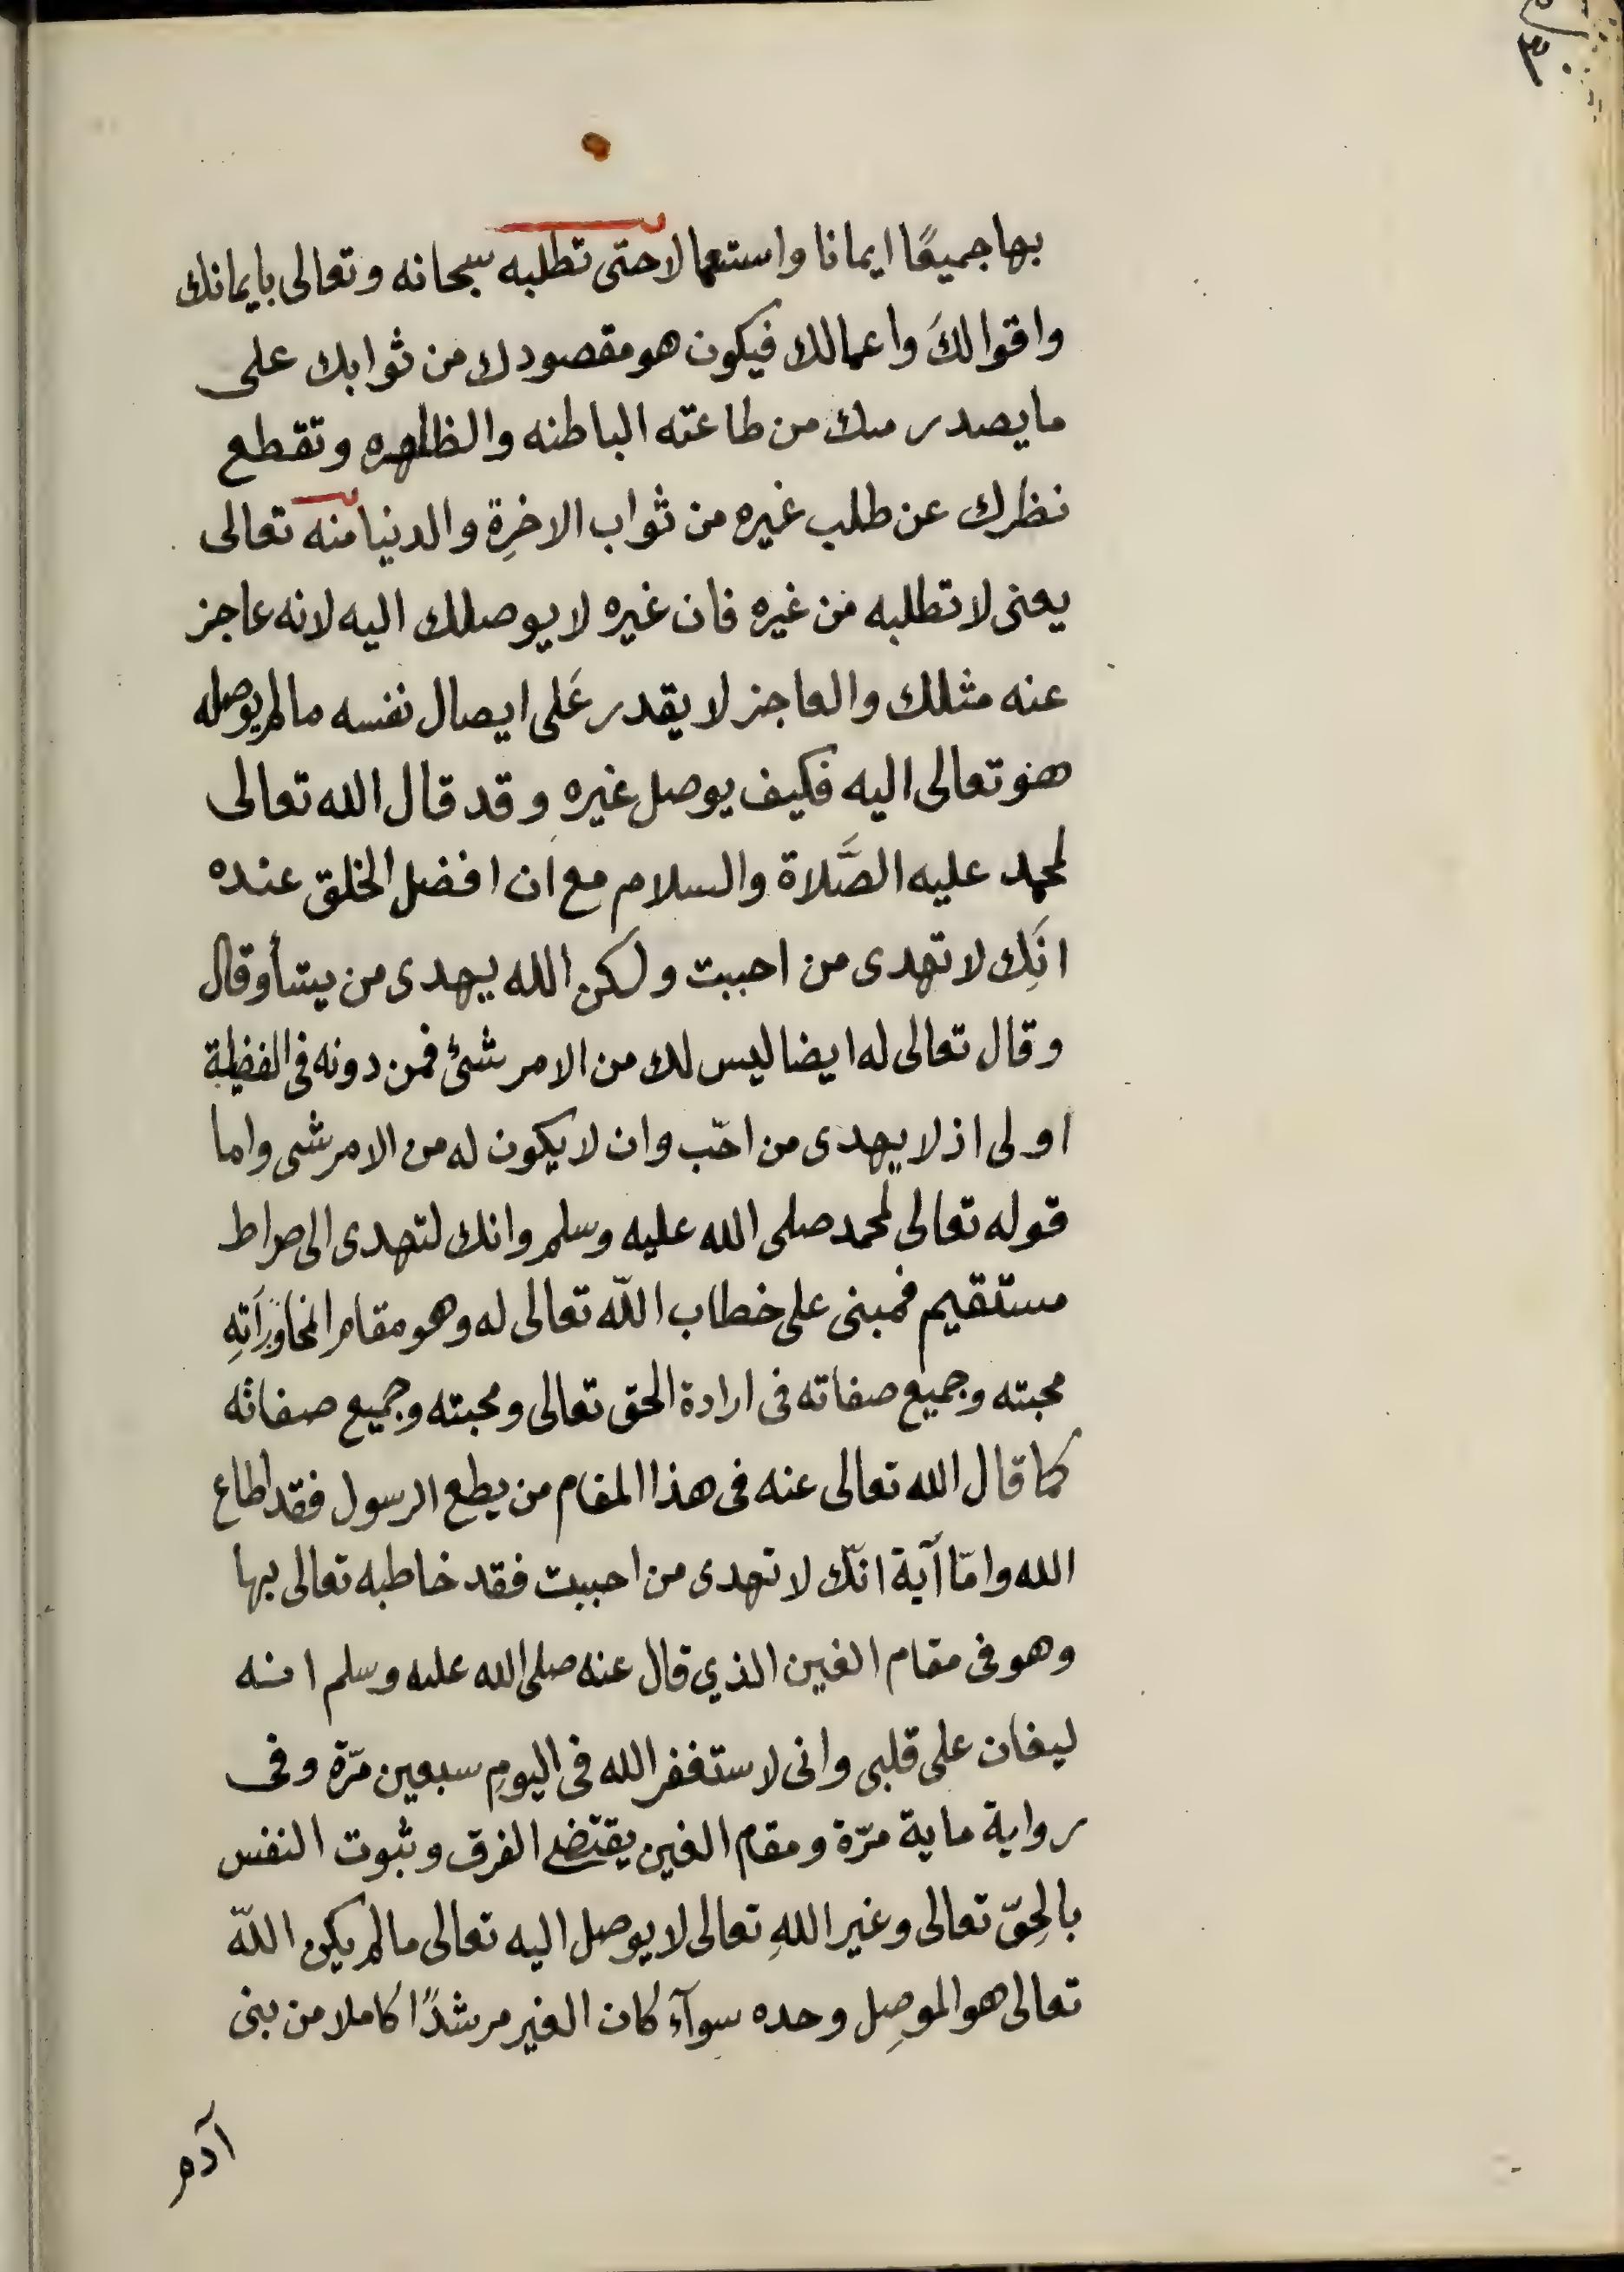 ٣٠
بها جميعًا ايمانا واستعمالا حتى تطلبه سبحانه وتعالى بايمانك
واقوالكَ واعمالك فيكون هو مقصودك من ثوابك على
ما يصدر منك من طاعته الباطنه والظاهره وتقطع
نظرك عن طلب غيره من ثواب الاخرِة والدنيا منه تعالى
يعنى لا تطلبه من غيره فان غيره لا يوصلك اليه لانه عاجز
عنه مثلك والعاجز لا يقدر عَلى ايصال نفسه مالم يوصله
هو تعالى اليه فكيف يوصل غيره وقد قال الله تعالى
لمحمد عليه الصَّلاة والسلام مع ان افضل الخلق عنده
انَك لا تهدى من احببت ولكن الله يهدى من يشأ وقال
وقال تعالى له ايضا ليس لك من الامر شئ فمن دونه فى الفظيلة
اولى اذ لا يهدى من احّب وان لا يكون له من الامر شى واما
قوله تعالى لمحمد صلى الله عليه وسلم وانك لتهدى الى صراط
مستقيم فمبنى على خطاب اللّه تعالى له وهو مقام
محبته وجميع صفاته فى ارادة الحق تعالى ومحبته وجميع صفاته
كما قال الله تعالى عنه فى هذا المقام من يطع الرسول فقد اطاع
الله وامّا آية انّك لا تهدى من احببت فقد خاطبه تعالى بها
وهو فى مقام الغين الذي قال عنه صلى الله عليه وسلم انه
ليغان على قلبى وانى لاستغفر الله فى اليومِ سبعين مّرة وفى
رواية ماية مرّة ومقام الغين يقتضي الفرق وثبوت النفس
بالحِقّ تعالى وغير اللهِ تعالى لا يوصل اليه تعالى مالم يكن اللّه
تعالى هو الموصِل وحده سوآء كان الغير مرشدًا كاملا من بنى
آدم